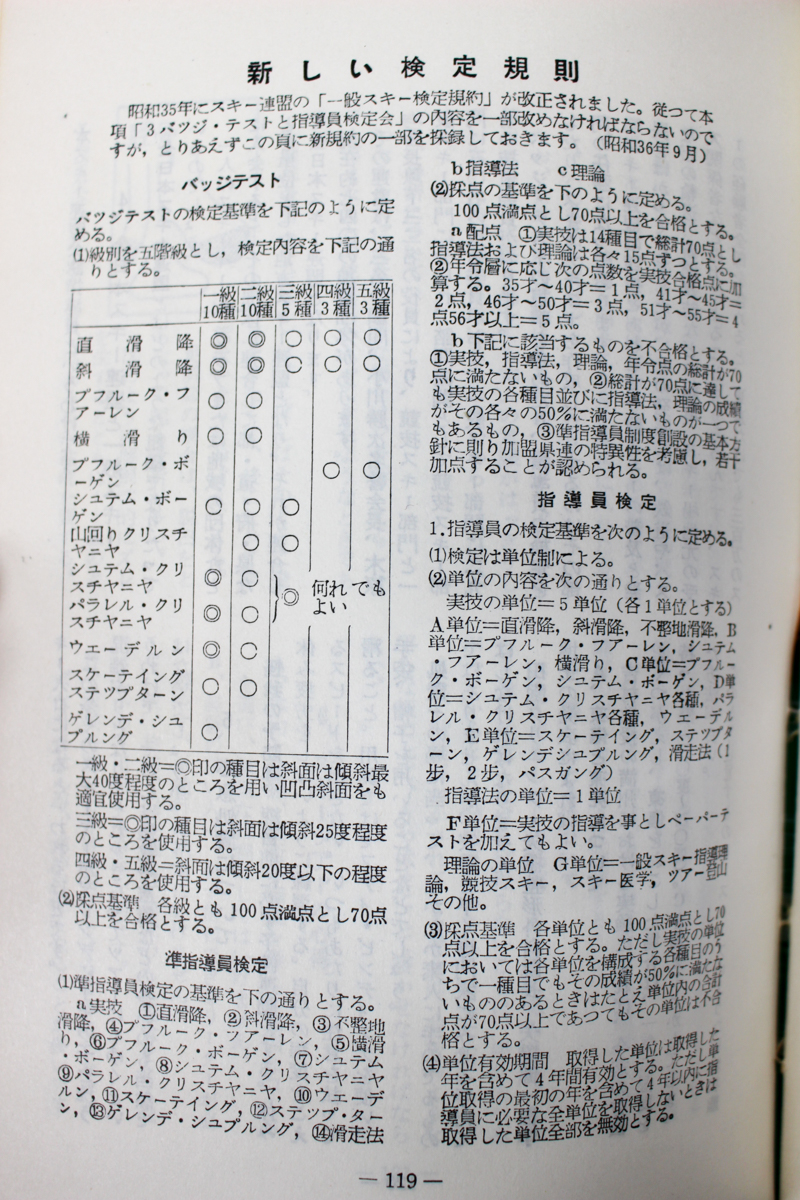 新しい検定規則
昭和35年にスキー連盟の「一般スキー検定規約」が改正されました。従つて本
項「3バツジ・テストと指導員検定会」の内容を一部改めなければならないので
すが，とりあえずこの頁に新規約の一部を採録しておきます。（昭和36年9月）
バッジテスト
バツジテストの検定基準を下記のように定
める。
⑴級別を五階級とし，検定内容を下記の通
りとする。
一級 二級 三級 四級 五級
10種 10種 5種 3種 3種
直滑降 ◎ ◎ ○ ○ ○
斜滑降 ◎ ◎ ○ ○ ○
プフルーク・フ
アーレン ○ ○
横滑り ○ ○
プフルーク・ボ
ーゲン ○ ○
シュテム・ボー
ゲン ○ ○ ○
山回りクリスチ
ヤニヤ ○ ○
シュテム・クリ
スチヤニヤ ◎ ○
パラレル・クリ
スチヤニヤ ◎ ○
◎ 何れでも
よい
ウエーデルン ◎ ○
スケーテイング
ステツプターン ○ ○
ゲレンデ・シュ
プルング ○
一級・二級＝◎印の種目は斜面は傾斜最
大40度程度のところを用い凹凸斜面をも
適宜使用する。
三級＝◎印の種目は斜面は傾斜25度程度
のところを使用する。
四級・五級＝斜面は傾斜20度以下の程度
のところを使用する。
⑵採点基準　各級とも100点満点とし70点
以上を合格とする。
準指導員検定
⑴準指導員検定の基準を下の通りとする。
a実技　①直滑降，②斜滑降，③不整地
滑降，④プフルーク・フアーレン，⑤横滑
り，⑥プフルーク・ボーゲン，⑦シュテム
・ボーゲン，⑧シュテム・クリスチヤニヤ
⑨パラレル・クリスチヤニヤ，⑩ウエーデ
ルン，⑪スケーテイング，⑫ステツプ・ター
ン，⑬ゲレンデ・シュプルング，⑭滑走法
b指導法　c理論
⑵採点の基準を下のように定める。
100点満点とし70点以上を合格とする。
a配点　①実技は14種目で総計70点とし
指導法および理論は各々15点ずつとする。
②年令層に応じ次の点数を実技合格点に加
算する。35才〜40才＝1点，41才〜45才＝
2点，46才〜50才＝3点，51才〜55才＝4
点56才以上＝5点。
b下記に該当するものを不合格とする。
①実技，指導法，理論，年令点の総計が70
点に満たないもの，②総計が70点に達して
も実技の各種目並びに指導法，理論の成績
がその各々の50％に満たないものが一つで
もあるもの，③準指導員制度創設の基本方
針に則り加盟県連の特異性を考慮し，若干
加点することが認められる。
指導員検定
1.指導員の検定基準を次のように定める。
⑴検定は単位制による。
⑵単位の内容を次の通りとする。
実技の単位＝5単位（各1単位とする）
A単位＝直滑降，斜滑降，不整地滑降，B
単位＝プフルーク・フアーレン，シュテム
・フアーレン，横滑り，C単位＝プフルー
ク・ボーゲン，シュテム・ボーゲン，D単
位＝シュテム・クリスチヤニヤ各種，パラ
レル・クリスチヤニヤ各種，ウエーデル
ン，E単位＝スケーテイング，ステツプタ
ーン，ゲレンデシュプルング，滑走法（1
歩，2歩，パスガング）
指導法の単位＝1単位
F単位＝実技の指導を事としペーパーテ
ストを加えてもよい。
理論の単位　G単位＝一般スキー指導理
論，競技スキー，スキー医学，ツアー登山
その他。
⑶採点基準　各単位とも100点満点とし70
点以上を合格とする。ただし実技の単位
においては各単位を構成する各種目のう
ちで一種目でもその成績が50％に満たな
いもののあるときはたとえ単位内の合計
点が70点以上であつてもその単位は不合
格とする。
⑷単位有効期間　取得した単位は取得した
年を含めて4年間有効とする。ただし単
位取得の最初の年を含めて4年以内に指
導員に必要な全単位を取得しないときは
取得した単位全部を無効とする。
— 119 —